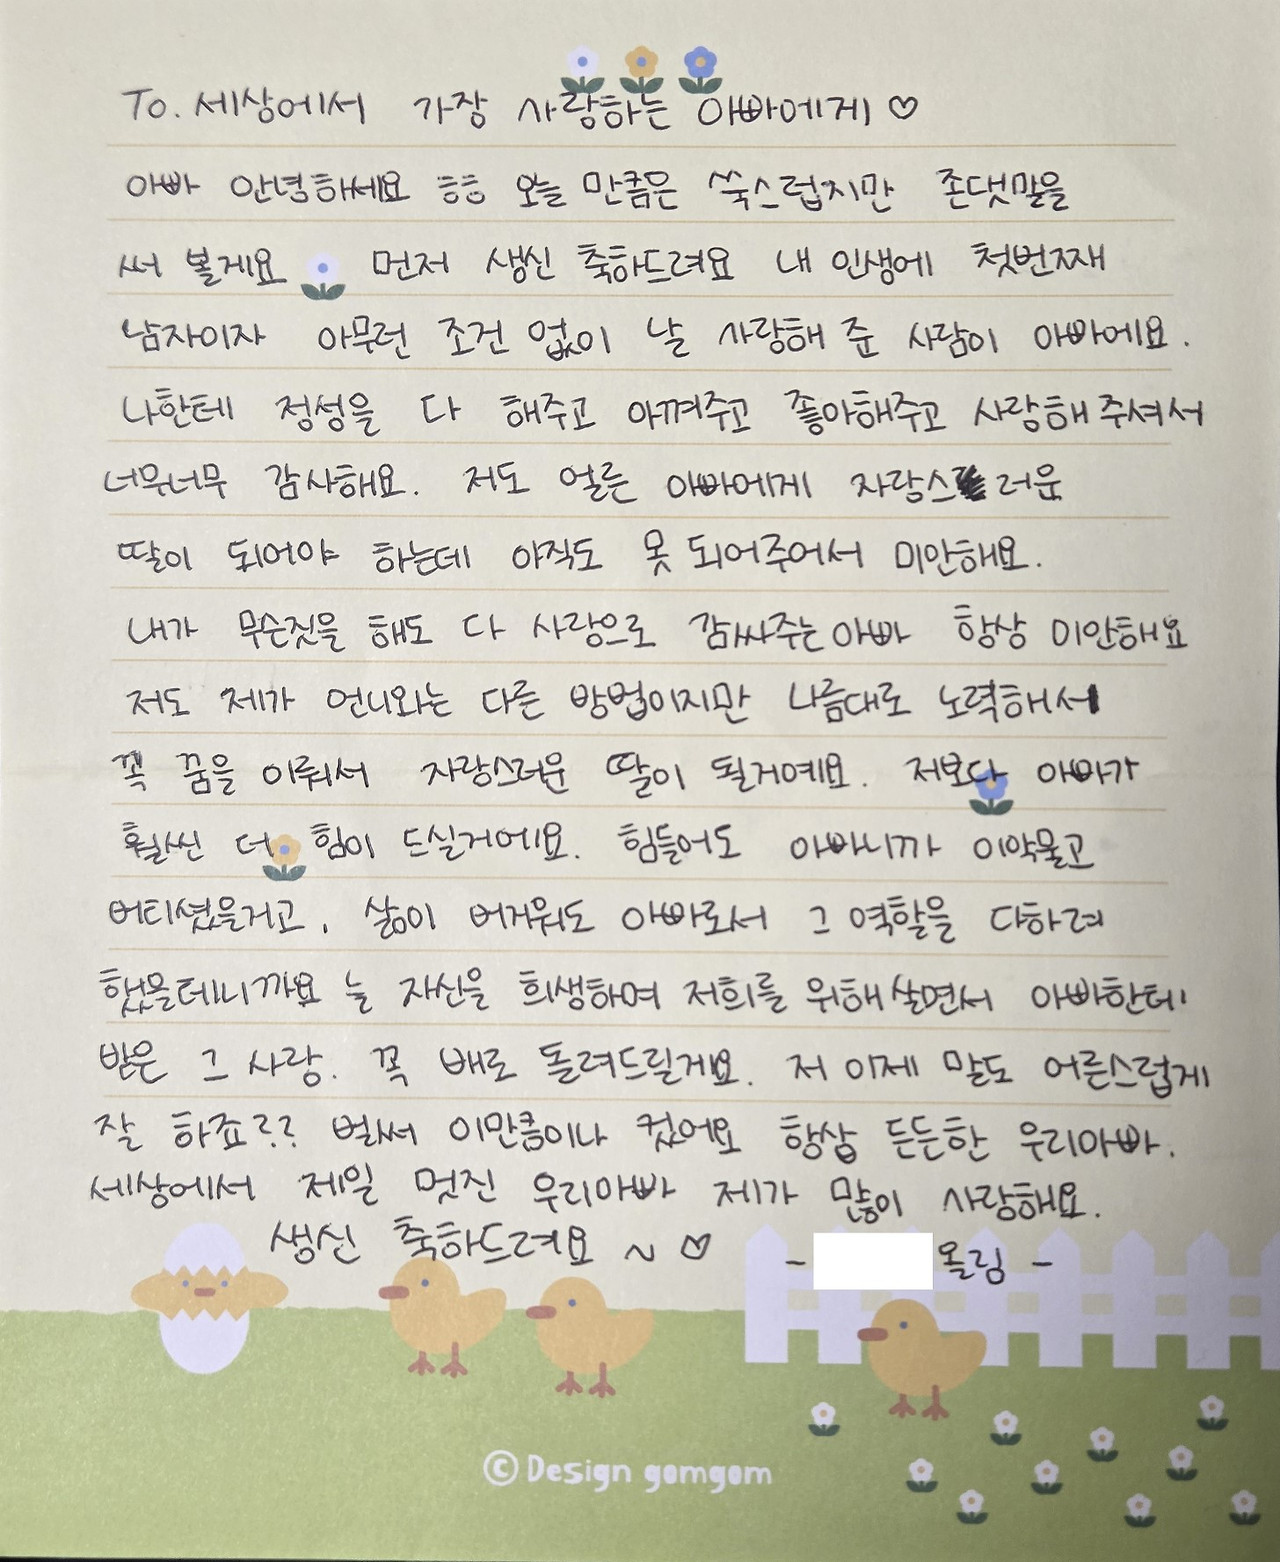 To. 세상에서 가장 사랑하는 아빠에게 ♡
아빠 안녕하세요 ㅎㅎ 오늘 만큼은 쑥스럽지만 존댓말을
써 볼게요 먼저 생신 축하드려요 내 인생에 첫번째
남자이자 아무런 조건 없이 날 사랑해 준 사람이 아빠에요.
나한테 정성을 다 해주고 아껴주고 좋아해주고 사랑해 주셔서
너무너무 감사해요. 저도 얼른 아빠에게 자랑스러운
딸이 되어야 하는데 아직도 못 되어주어서 미안해요.
내가 무슨짓을 해도 다 사랑으로 감싸주는 아빠 항상 미안해요
저도 제가 언니와는 다른 방법이지만 나름대로 노력해서
꼭 꿈을 이뤄서 자랑스러운 딸이 될거예요. 저보다 아빠가
훨씬 더 힘이 드실거에요. 힘들어도 아빠니까 이악물고
버티셨을거고, 삶이 버거워도 아빠로서 그 역할을 다하려
했을테니까요 늘 자신을 희생하여 저희를 위해 살면서 아빠한테
받은 그 사랑. 꼭 배로 돌려드릴게요. 저 이제 말도 어른스럽게
잘 하죠?? 벌써 이만큼이나 컸어요 항상 든든한 우리아빠.
세상에서 제일 멋진 우리아빠 제가 많이 사랑해요.
생신 축하드려요 ~ ♡
- 올림 -
© Design gomgom